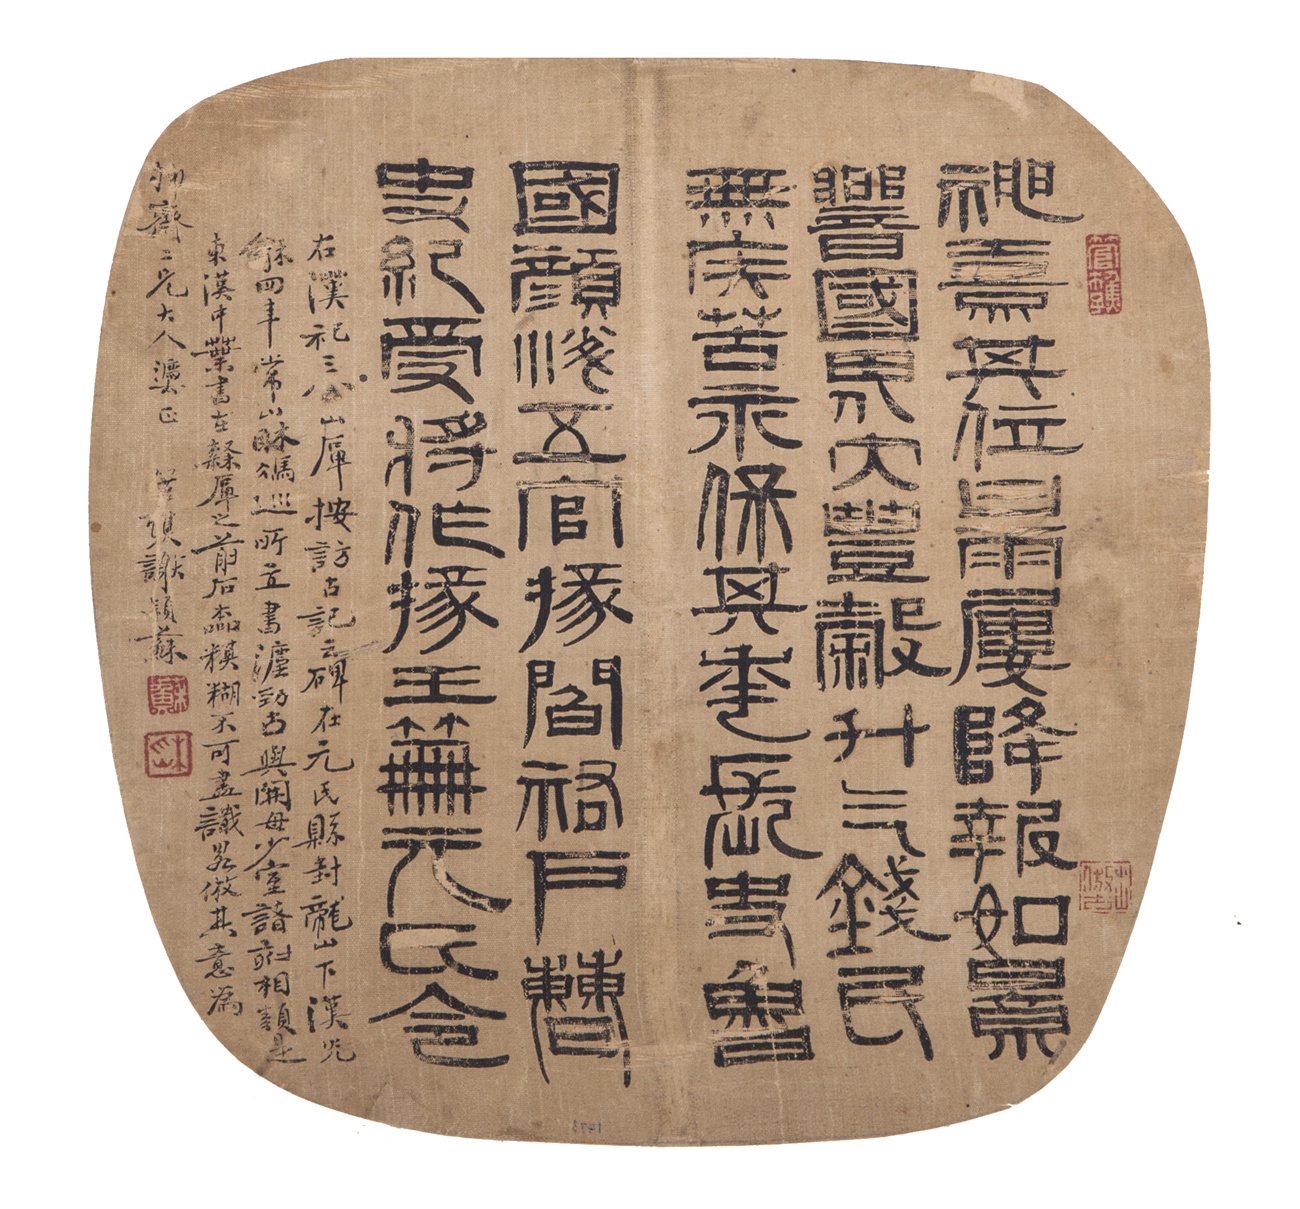 神熹其位甘雨屢降報如景
響國界大豐穀斗三錢民
無疾苦永保其年長史魯
國顏浮五官掾閻祐戶曹
史紀受將作掾王蕭元氏令
右漢祀三公山碑按訪古記云碑在元氏縣封龍山下漢元
初四年常山相馮巡所立書法勁古與開母少室諸刻相類是
東漢中葉書在隸碑之前石本模糊不可盡識略倣其意為
二兄大人灋正 弟頴蘇